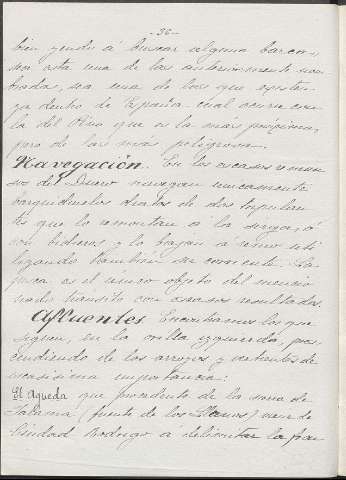 - 36 -
bien yendo á buscar alguna barca,
sea esta una de las anteriormente nom-
bradas, sea una de las que existen
ya dentro de España cual ocurre con
la del que es la más próxima,
pero de las más peligrosa.
Navegación. En los escasos reman-
sos del Duero navegan unicamente
barquichuelos de dos tripulan-
tes que lo remontan a la sirga, ó
con bicheros y lo bajan á remo uti-
lizando tambien su corriente. La
pesca es el único objeto del mencio-
nado tránsito con escasos resultados.
Afluentes. Encontramos los que
siguen, en la orilla izquierda, pres-
cindiendo de los arroyos y vertientes de
escasisima importancia:
El Agueda que procedente de la sierra de
Jalama (fuente de los Llanos) viene de
Ciudad Rodrigo a delimitar la fron